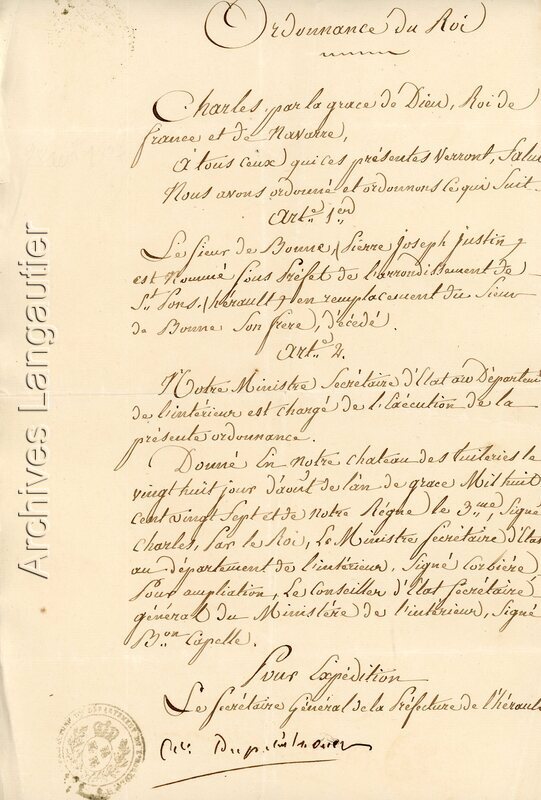 Ordonnance du Roi
Charles, par la grace de Dieu, Roi de
france et de Navarre,
A tous ceux qui ces présentes verront, Salut
Nous avons ordonné et ordonnons ce qui Suit.
Art.e 1.er
Le Sieur de Bonne, (Pierre Joseph Justin)
est Nommé Sous Préfet de l'arrondissement de
S.t Pons, (hérault) en remplacement du Sieur
de Bonne Son frere, décédé.
Art.e 2.
Notre Ministre Secrétaire d'Etat au Départem
de l'intérieur est chargé de l'Exécution de la
présente ordonnance.
Donné En notre chateau des tuileries le
vingt huit jour d'août de l'an de grace Mil huit
cent vingt Sept et de notre Règne le 3.me, Signé
Charles, Par le Roi, Le Ministre Secrétaire d'Etat
au département de l'intérieur, Signé Corbière,
Pour ampliation, Le Conseiller d'Etat Secrétaire
général du Ministère de l'intérieur, Signé
B.on Capelle.
Pour Expédition
Le Secrétaire Général de la Préfecture de l'hérault
Archives Langautier